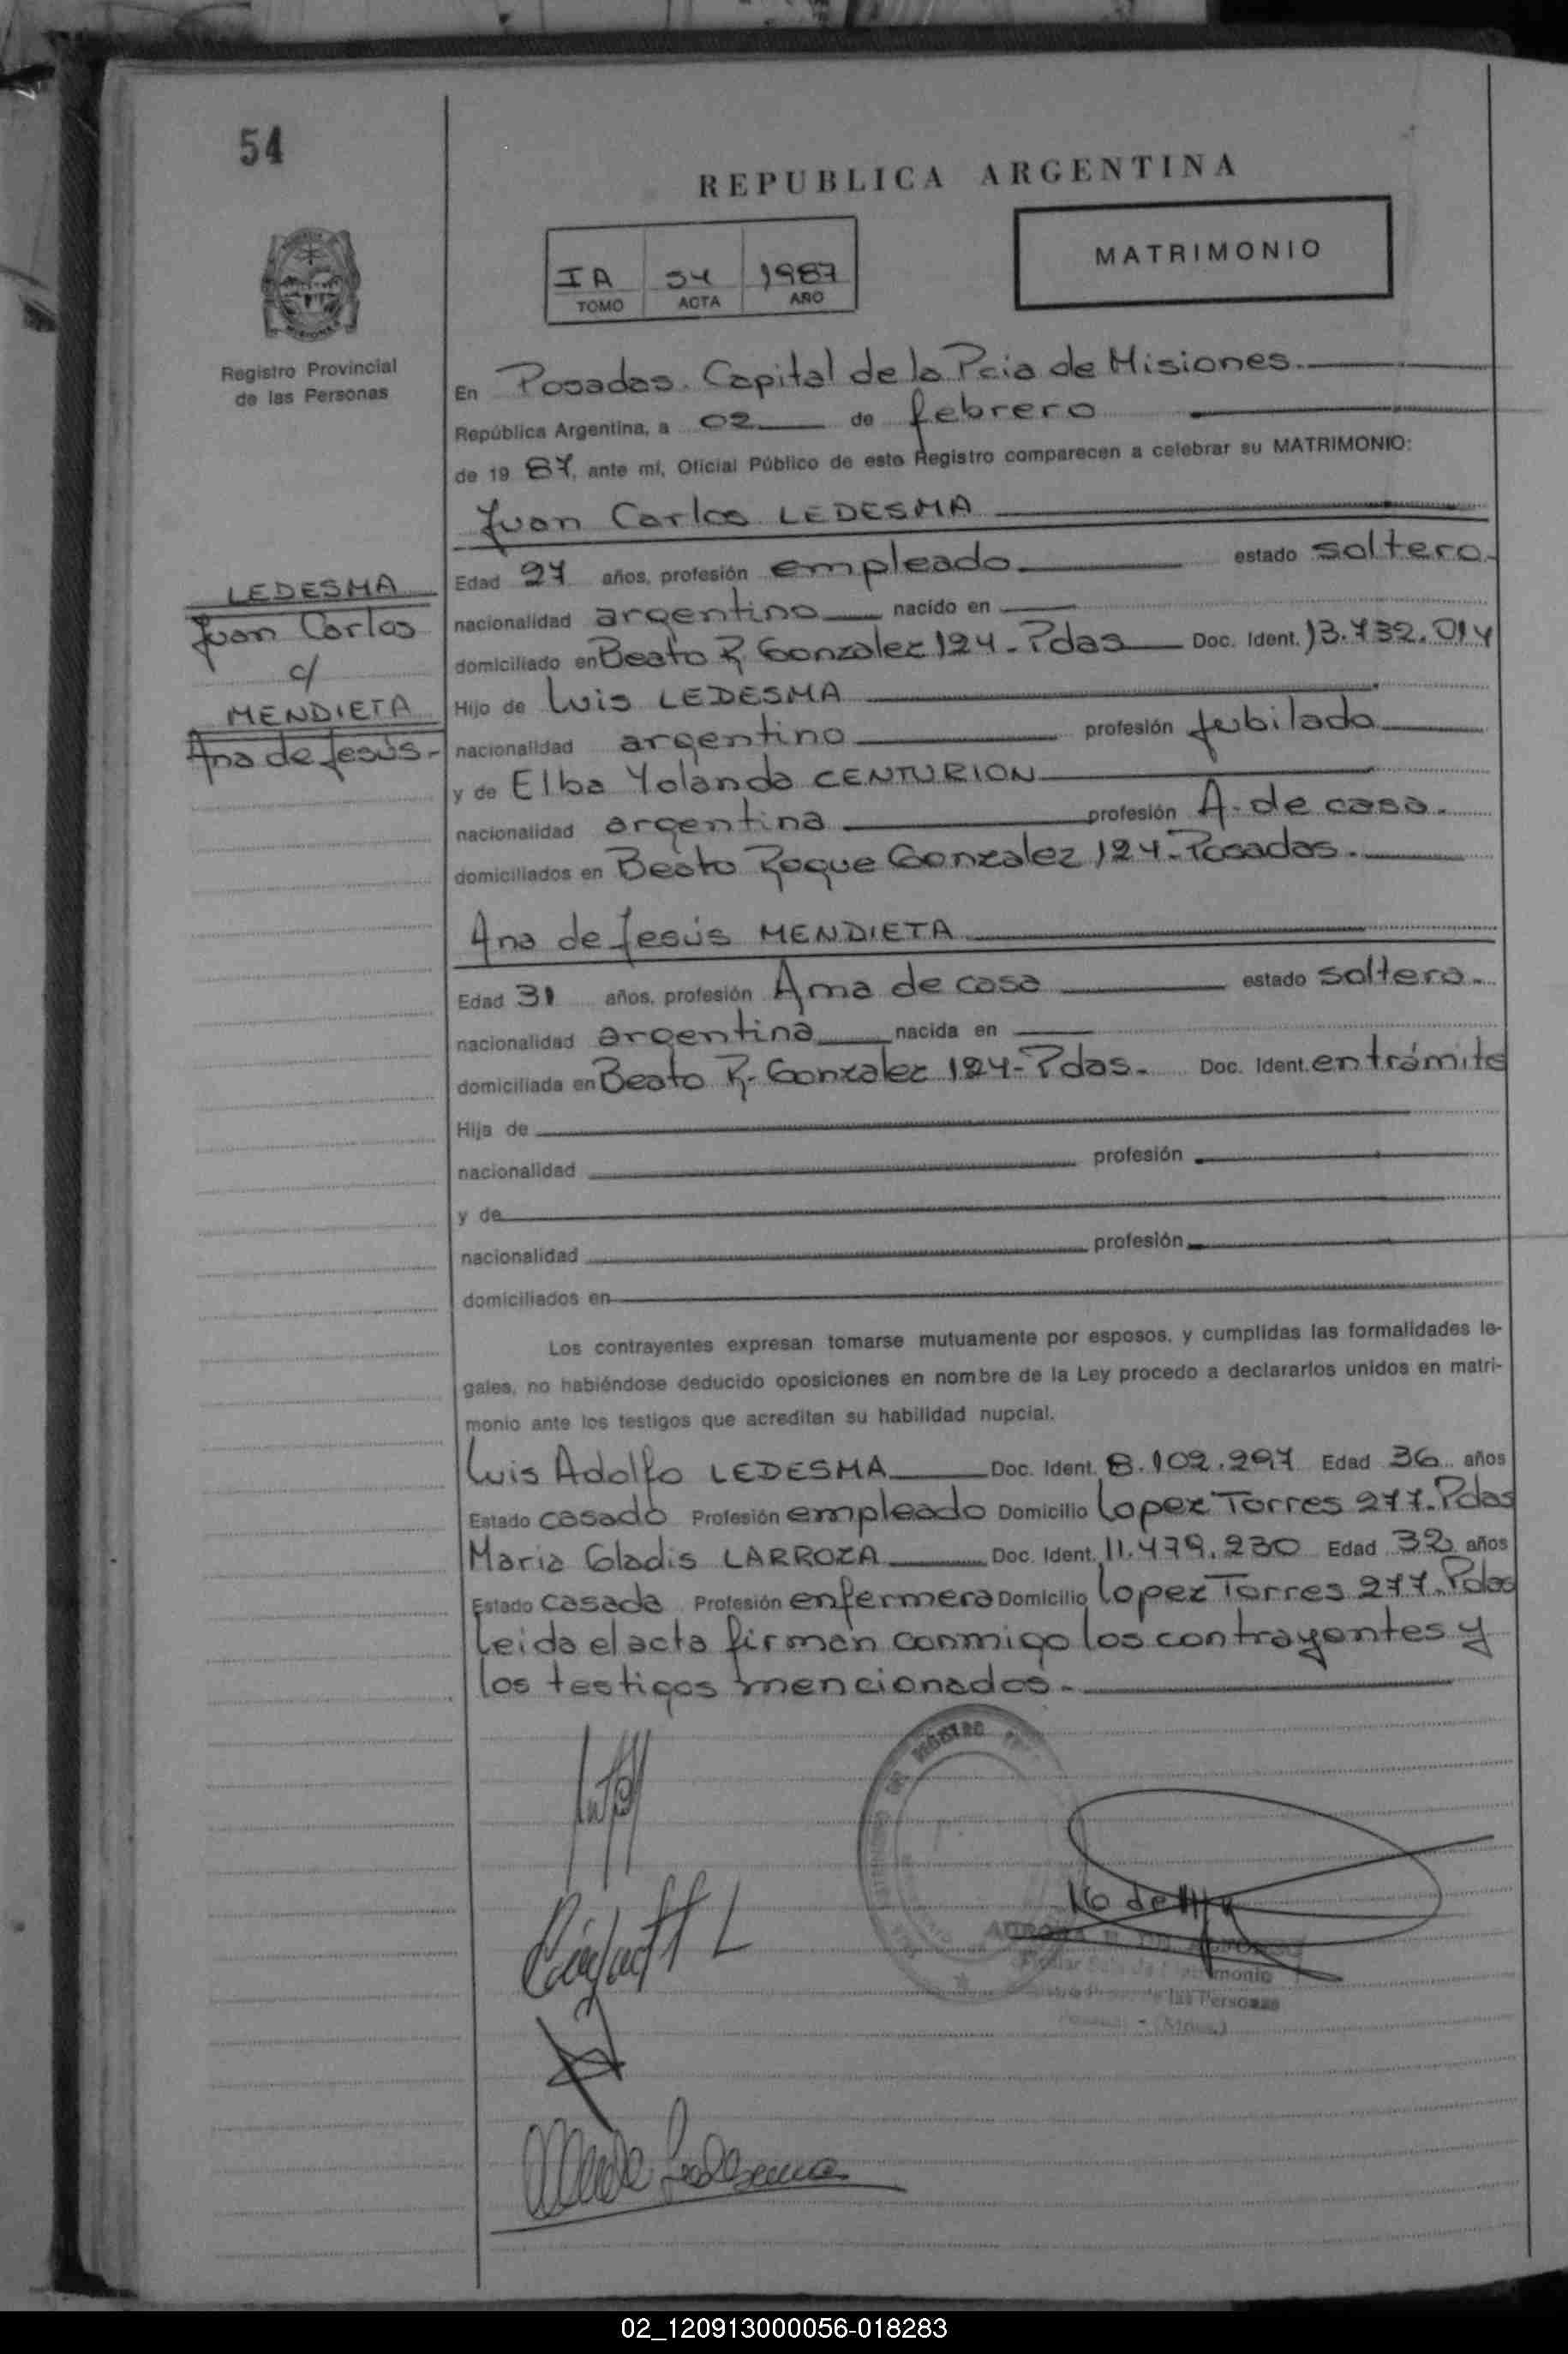 54
REPUBLICA ARGENTINA
MATRIMONIO
IA 54 1987
TOMO ACTA AÑO
MISIONES
Registro Provincial
de las Personas
En Posadas. Capital de la Pcia de Misiones.
República Argentina, a 02 de febrero
de 1987, ante mí, Oficial Público de este Registro comparecen a celebrar su MATRIMONIO:
Juan Carlos LEDESMA
Edad 27 años, profesión empleado estado soltero.
nacionalidad argentino nacido en
domiciliado en Beato R Gonzalez 124 - Pdas Doc. Ident. 13.732.014
Hijo de Luis LEDESMA
nacionalidad argentino profesión jubilado
y de Elba Yolanda CENTURION
nacionalidad argentina profesión A. de casa.
domiciliados en Beato Roque Gonzalez 124 - Posadas.
LEDESMA
Juan Carlos
c/
MENDIETA
Ana de Jesús.-
Ana de Jesús MENDIETA
Edad 31 años, profesión Ama de casa estado soltera.
nacionalidad argentina nacida en
domiciliada en Beato R. Gonzalez 124 - Pdas. Doc. Ident. en trámite
Hija de
nacionalidad profesión
y de
nacionalidad profesión
domiciliados en
Los contrayentes expresan tomarse mutuamente por esposos, y cumplidas las formalidades le-
gales, no habiéndose deducido oposiciones en nombre de la Ley procedo a declararlos unidos en matri-
monio ante los testigos que acreditan su habilidad nupcial.
Luis Adolfo LEDESMA Doc. Ident. 8.102.297 Edad 36 años
Estado casado Profesión empleado Domicilio Lopez Torres 277 - Pdas
Maria Gladis LARROZA Doc. Ident. 11.479.230 Edad 32 años
Estado casada Profesión enfermera Domicilio Lopez Torres 277 - Pdas
Leida el acta firman conmigo los contrayentes y
los testigos mencionados.-
REGISTRO
Ledesma
monio
las Personas
02_120913000056-018283